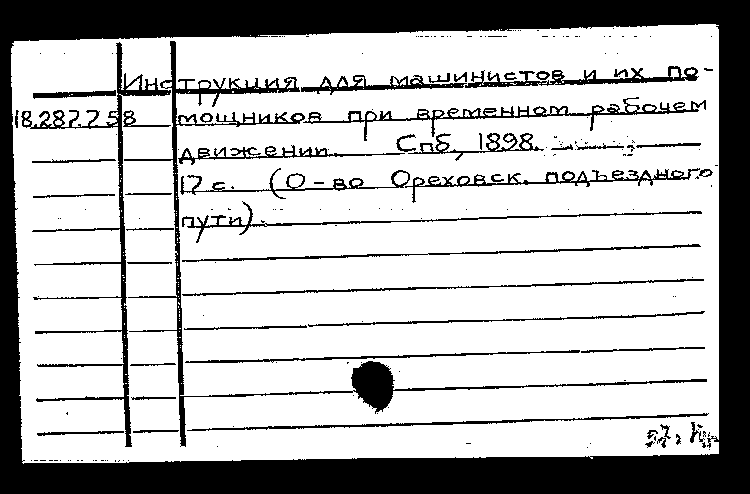 Инструкция для машинистов и их по-
18.287.7.58 мощников при временном рабочем
движении. Спб., 1898.
17 с. (О-во Ореховск. подъездного
пути).